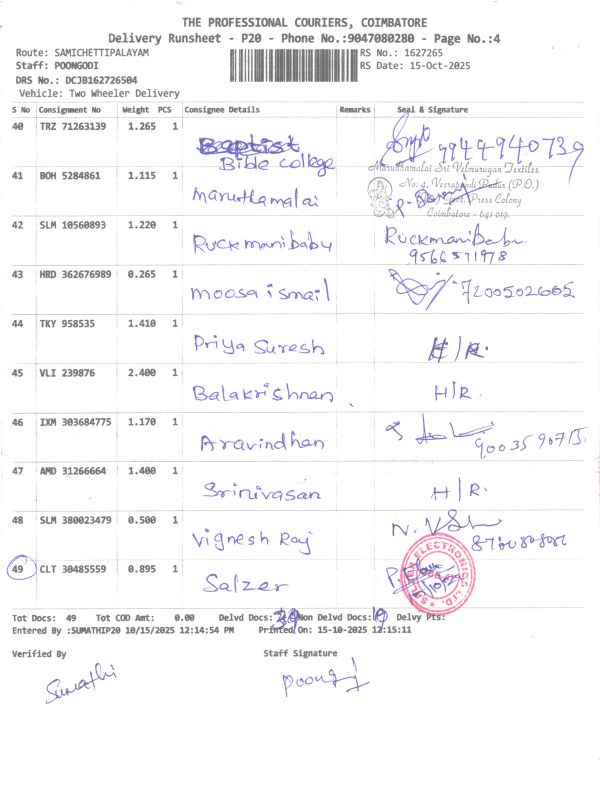 THE PROFESSIONAL COURIERS, COIMBATORE
Delivery Runsheet - P20 - Phone No.:9047080280 - Page No.:4
Route: SAMICHETTIPALAYAM RS No.: 1627265
Staff: POONGODI RS Date: 15-Oct-2025
DRS No.: DCJB162726504
Vehicle: Two Wheeler Delivery
S No Consignment No Weight PCS Consignee Details Remarks Seal & Signature
40 TRZ 71263139 1.265 1 Baptist Bible college 9944940739
41 BOH 5284861 1.115 1 Maruthamalai
Maruthamalai Sri Velmurugan Textiles
No: 4, Veerapandi Pudur (P.O.)
Press Colony
Coimbatore - 641 019.
42 SLM 10560893 1.220 1 Ruckmanibabu Ruckmanibabu
9566571978
43 HRD 362676989 0.265 1 moosa ismail 7200502605
44 TKY 958535 1.410 1 Priya Suresh H/R.
45 VLI 239876 2.400 1 Balakrishnan H/R.
46 IXM 303684775 1.170 1 Aravindhan
47 AMD 31266664 1.400 1 Srinivasan H/R.
48 SLM 380023479 0.500 1 Vignesh Raj
49 CLT 30485559 0.895 1 Salzer
SALZER ELECTRONICS LTD.
Tot Docs: 49 Tot COD Amt: 0.00 Delvd Docs: 39 Non Delvd Docs: 10 Delvy Pts:
Entered By :SUMATHIP20 10/15/2025 12:14:54 PM Printed On: 15-10-2025 12:15:11
Verified By Staff Signature
Sumathi